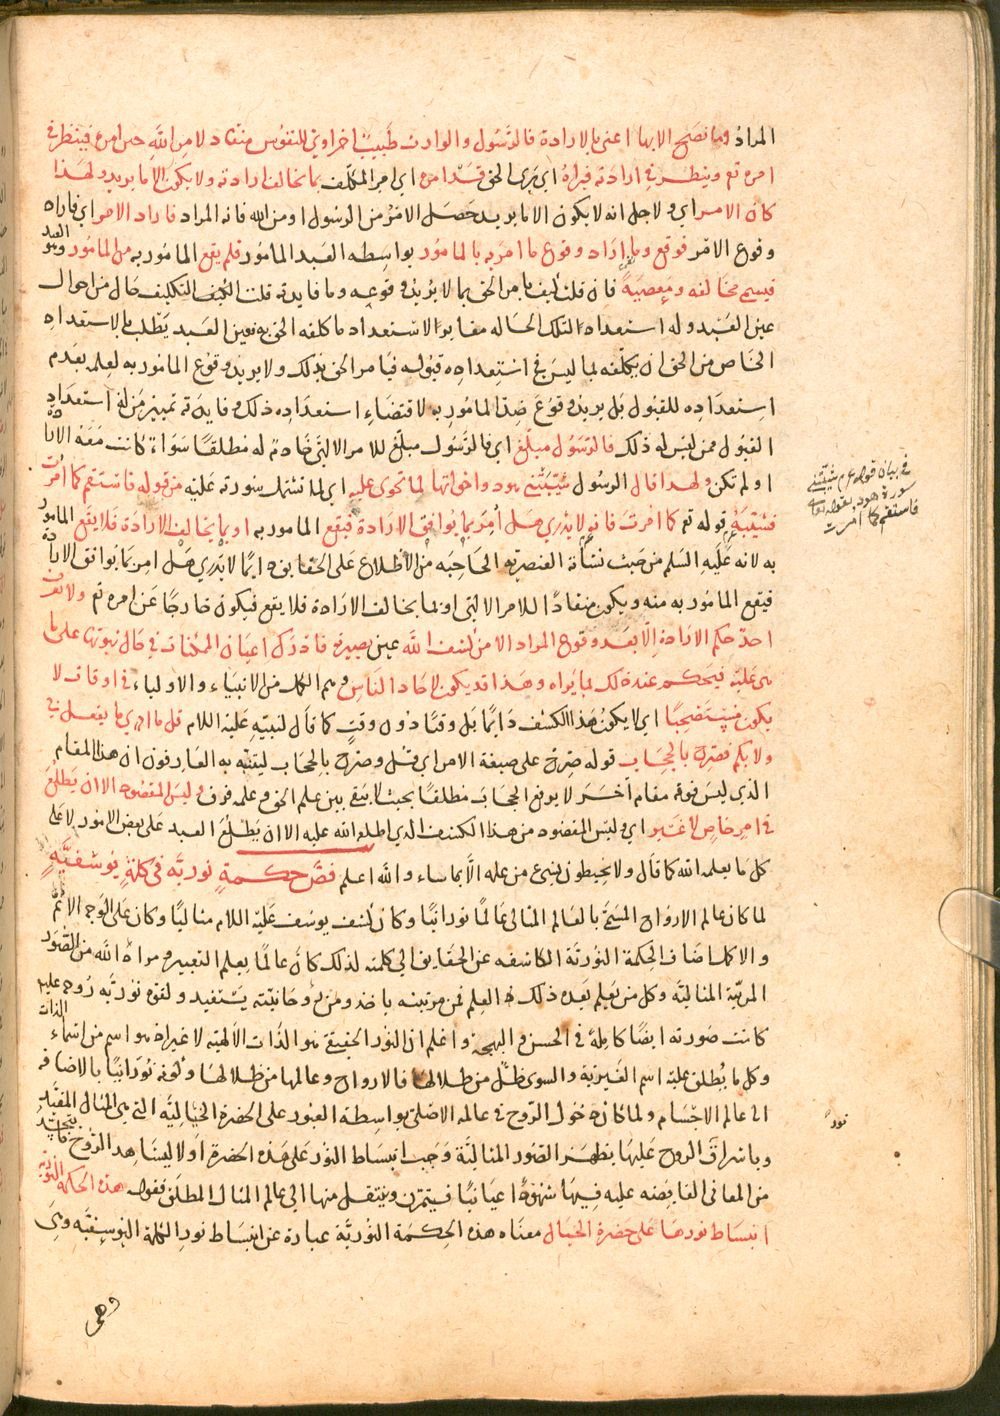 المراد وما نصح الا بها اعني بالارادة فالرسول والوارث طبيب اخراوي للنفوس منقاد لامر الله حين امره فينظر في
امره تع وينظر في ارادته فيراه اي يرى الحق قد امره اي امر المكلف بما يخالف ارادته ولا يكون الا ما يريد ولهذا
كان الامر اي ولاجل انه لا يكون الا ما يريد حصل الامر من الرسول او من الله فانه المراد فاراد الامر اي فاراد
وقوع الامر فوقع وما اراد وقوع ما امر به بالمامور بواسطه العبد المامور فلم يقع المامور به من المامور وهو العبد
فيسمى مخالفه ومعصية فان قلت كيف يامر الحق بما لا يريد وقوعه وما فايدته قلت التكليف حال من احوال
عين العبد وله استعداد لتلك الحاله مغاير الاستعداد ما كلفه الحق به فعين العبد يطلب بالاستعداد
الخاص من الحق ان يكلفه بما ليس في استعداده قبوله فيامر الحق بذلك ولا يريد وقوع المامور به لعلمه بعدم
استعداده للقبول بل يريد وقوع ضد المامور به لاقتضاء استعداده ذلك وفايدته تمييز من له استعداد
القبول ممن ليس له ذلك فالرسول مبلغ اي فالرسول مبلغ للامر الالهي خادم له مطلقا سواء كانت معه الارادة
او لم تكن ولهذا قال الرسول شيبتني هود واخواتها لما تحوى عليه اي لما تشتمل سورته عليه من قوله فاستقم كما امرت
فشيبه قوله تع كما امرت فانه لا يدري هل امر بما يوافق الارادة فيقع المامور به او بما يخالف الارادة فلا يقع المامور
به لانه عليه السلم من حيث نشأته العنصريه الحاجبه من الاطلاع على الحقايق دايما لا يدري هل امر بما يوافق الارادة
فيقع المامور به منه ويكون منقادا للامر الالهي او بما يخالف الارادة فلا يقع فيكون خارجا عن امره تع ولا يعرف
احد حكم الارادة الا بعد وقوع المراد الا من كشف الله عين بصيرته فادرك اعيان الممكنات في حال ثبوتها على ما
هي عليه فيحكم عند ذلك بما يراه وهذا قد يكون لاحاد الناس وهم الكمل من الانبياء والاولياء في اوقات لا
يكون مستصحبا اي لا يكون هذا الكشف دايما بل وقتا دون وقت كما قال لنبيه عليه السلام قل ما ادري ما يفعل بي
ولا بكم فصرح بالحجاب قوله صرح على صيغة الامر اي قل وصرح بالحجاب لينتبه به العارفون ان هذا المقام
الذي ليس فوقه مقام آخر لا يرفع الحجاب مطلقا بحيث لا يبقى بين علم الحق وعلمه فرق وليس المقصود الا ان يطلع
في امر خاص لا غير اي وليس المقصود من هذا الكشف الذي اطلع الله عليه الا ان يطلع العبد على بعض الامور لا على
كل ما يعلمه الله كما قال ولا يحيطون بشيء من علمه الا بما شاء والله اعلم فص حكمة نورية في كلمة يوسفية
لما كان عالم الارواح المسمى بالعالم المثالي عالما نورانيا وكان كشف يوسف عليه السلام مثاليا وكان على الوجه الاتم
والاكمل اضاف الحكمة النورية الكاشفه عن الحقايق الى كلمته لذلك كان عالما بعلم التعبير ومراد الله من الصور
المرئية المثالية وكل من يعلم بعده ذلك العلم فمن مرتبته ياخذ ومن روحانيته يستفيد ولقوة نورية روحه عليه
كانت صورته ايضا كاملة في الحسن والبهجة واعلم ان النور الحقيقي هو الذات الالهية لا غير اذ هو اسم من اسماء الذات
وكل ما يطلق عليه اسم الغيرية والسوى ظل من ظلالها فالارواح وعالمها من ظلالها وكونه نورانيا بالاضافه
الى عالم الاجسام ولما كان دخول الروح في عالمه الاصلي بواسطة العبور على الحضرة الخيالية التي هي المثال المقيد
وباشراق الروح عليها يظهر الصور المثالية وجب انبساط النور على هذه الحضرة اولا ليشاهد الروح ما يتجسد
من المعاني الفايضه عليه فيها شهودا عيانيا فيتمرن وينتقل منها الى عالم المثال المطلق فقوله هذه الحكمة النورية
انبساط نورها على حضرة الخيال معناه هذه الحكمة النورية عبارة عن انبساط نور الكلمة اليوسفيه وهي
وهي
في بيان قوله عم شيبتني
سورة هود بقوله تعالى
فاستقم كما امرت
نور